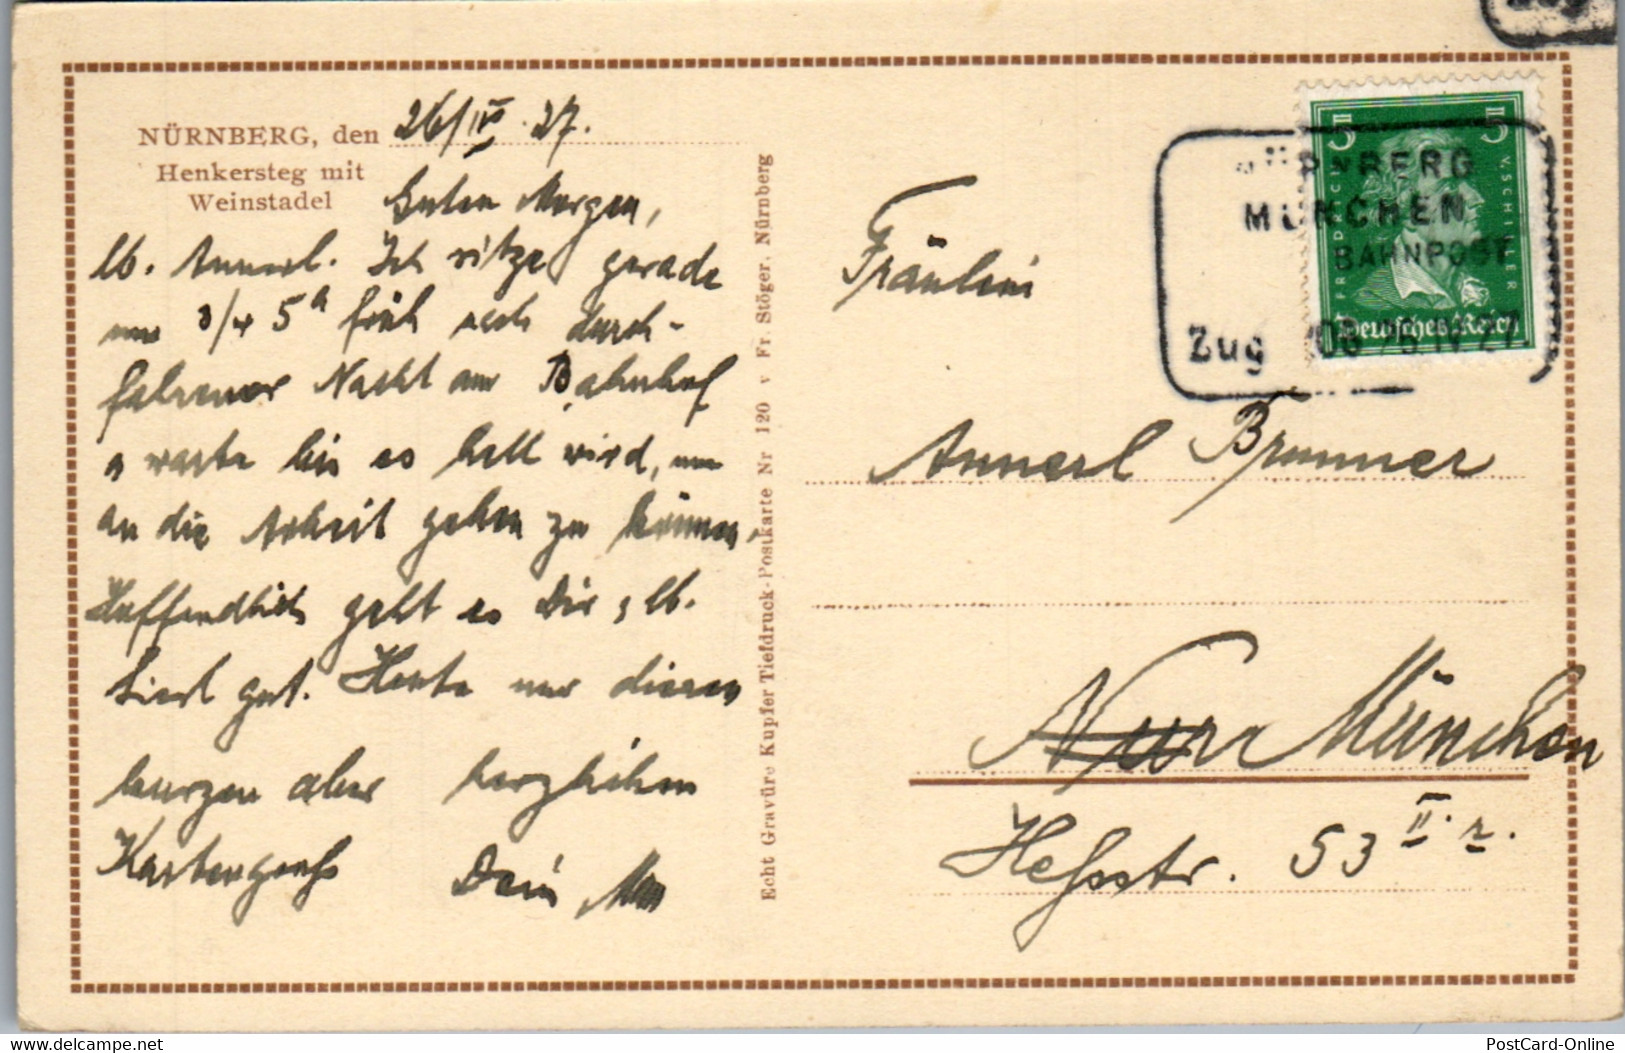 NÜRNBERG, den 26/IV. 27.
Henkersteg mit
Weinstadel
Guten Morgen,
lb. Annerl. Ich sitze gerade
um 3/4 5 h früh nach durch-
fahrener Nacht am Bahnhof
u warte bis es hell wird, um
an die Arbeit gehen zu können.
Hoffendlich geht es Dir, lb.
Lierl gut. Heute nur diesen
kurzen aber herzlichen
Kartengruß Dein
Echt Gravüre Kupfer Tiefdruck-Postkarte Nr 120 v Fr. Stöger, Nürnberg
5 5
FRIEDRICH V. SCHILLER
Deutsches Reich
NÜRNBERG
MÜNCHEN
BAHNPOST
Zug IV 27
Fräulein
Annerl Brunner
München
Heßstr. 53 II. r.
PostCard-Online.com